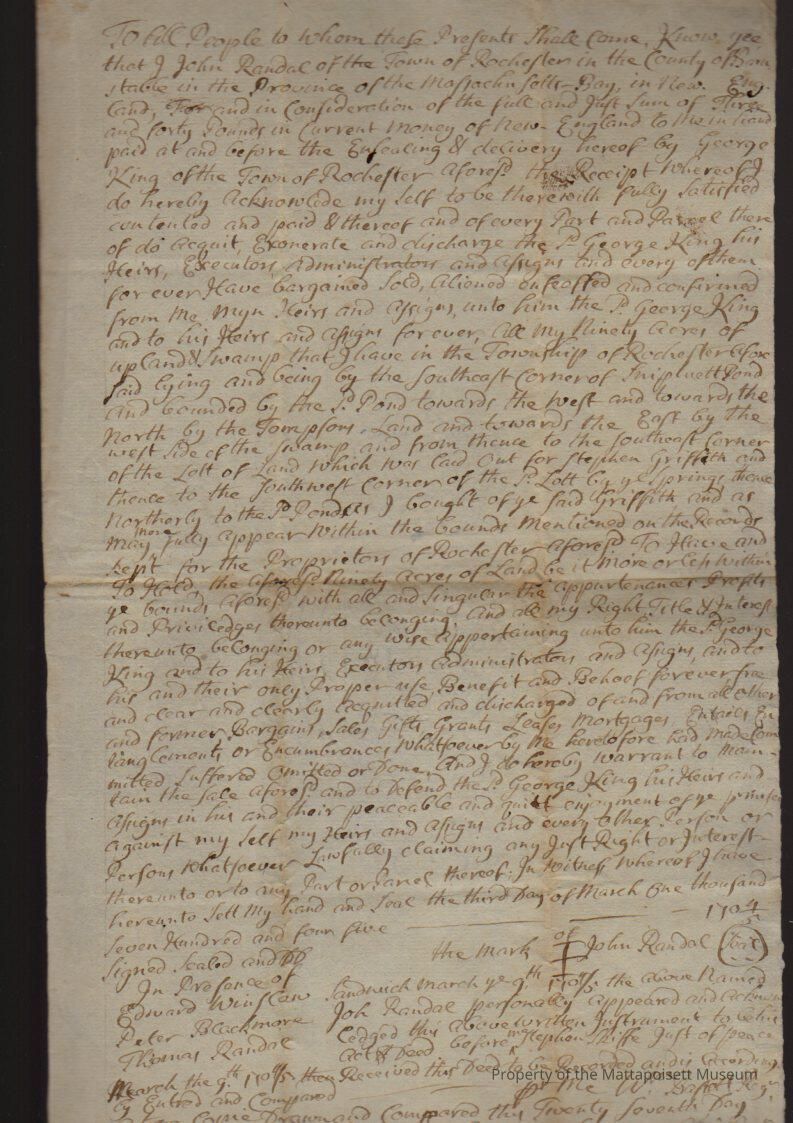 To All People to whom these Presents Shall Come, Know yee
that I John Randal of the Town of Rochester in the County of Barn
stable in the Province of the Massachusetts-Bay, in New Eng-
land, For and in Consideration of the full and Just Sum of Three
and forty Pounds in Current Money of New-England to me in hand
paid at and before the Ensealing & delivery hereof by George
King of the Town of Rochester aforesd the Receipt Whereof I
do hereby acknowledge my Self to be therewith fully Satisfied
contented and paid & thereof and of every Part and Parcel there
of do acquit, Exonerate and discharge the sd George King his
Heirs, Executors, Administrators and assigns and every of them
for ever Have bargained Sold, aliened enfeoffed and confirmed
from me, myn Heirs and assigns, unto him the sd George King
and to his Heirs and assigns for ever, all my Ninety acres of
upland & Swamp that I have in the Township of Rochester afore
said lying and being by the Southeast Corner of Snipuett Pond
and bounded by the sd Pond towards the west and towards the
North by the Tompsons Land and towards the East by the
west Side of the Swamp, and from thence to the Southeast Corner
of the Lott of Land which was laid out for Stephen Griffith and
thence to the Southwest Corner of the sd Lott by ye Springs thence
Northerly to the sd Pond as I bought of ye said Griffith and as
may more fully appear within the bounds mentioned on the Records
kept for the Proprietors of Rochester aforesd To Have and
To Hold the aforesd Ninety acres of Land be it more or less within
ye bounds aforesd with all and Singular the appurtenances Profits
and Priviledges thereunto belonging, and all my Right, Title & Interest
thereunto belonging or any wise appertaining unto him the sd George
King and to his Heirs, Executors Administrators and assigns, and to
his and their only Proper use, Benefit and Behoof forever free
and clear and clearly acquitted and discharged of and from all other
and former Bargains, Sales Gifts Grants Leases Mortgages, Entails En
tanglements or Encumbrances whatsoever by me heretofore had made Com
mitted Suffered omitted or Done, And I do hereby warrant to main-
tain the Sale aforesd and to Defend the sd George King his Heirs and
assigns in his and their peaceable and quiet enjoyment of ye premises
against my Self my Heirs and assigns and every other Person or
Persons whatsoever Lawfully claiming any Just Right or Interest
thereunto or to any Part or Parcel thereof. In witness whereof I have
hereunto Sett my hand and Seal the third Day of March One thousand
Seven Hundred and four five 1704/5
Signed Sealed and DD the mark of John Randal Seal
In Presence of
Edward Winslow
Peter Blackmore
Thomas Randal
Sandwich March ye 9th 1704/5 the above Named
Joh Randal personally appeared and acknow
ledged this above written Instrument to be his
act & Deed before me Stephen Skiffe Just of peace
March the 9th 1704/5 then Received this Deed to be Recorded and is according
ly Entred and Compared
Drawn and Compared this Twenty Seventh Day
Property of the Mattapoisett Museum